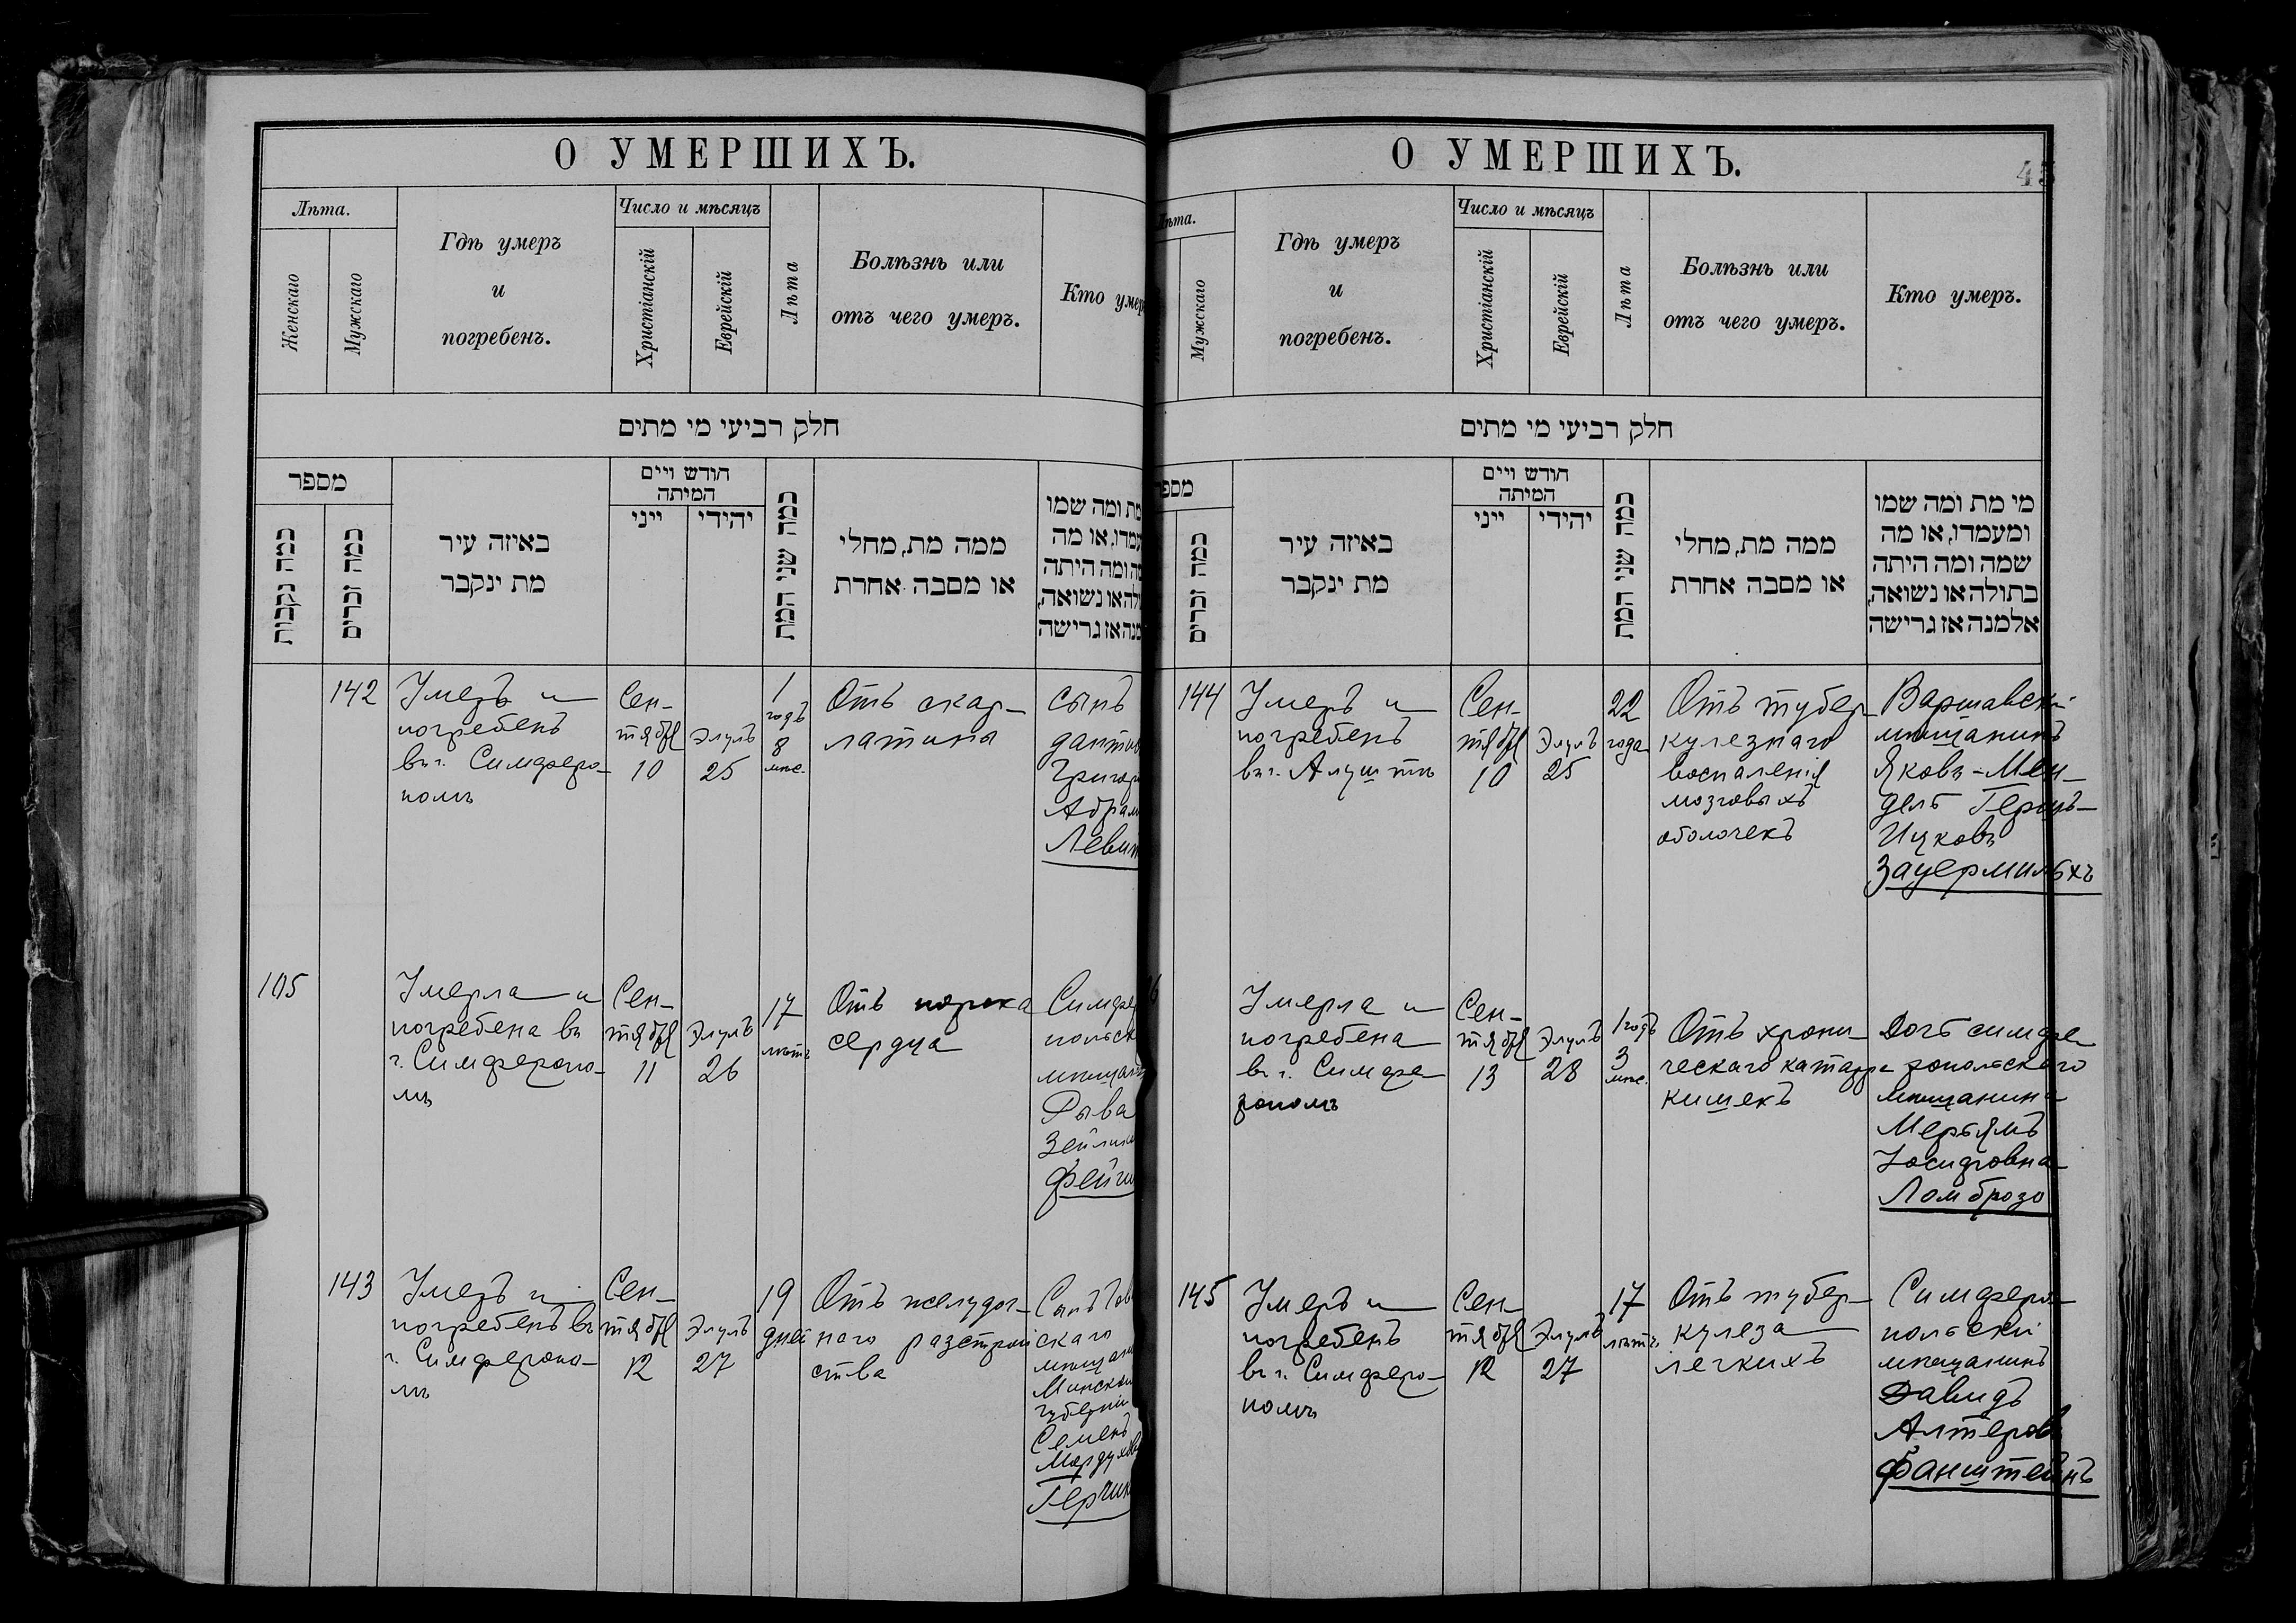 О УМЕРШИХЪ.
Лѣта.
Женскаго
Мужскаго
Гдѣ умеръ
и
погребенъ.
Число и мѣсяцъ
Христіанскій
Еврейскій
Лѣта
Болѣзнь или
отъ чего умеръ.
Кто умер
חלק רביעי מי מתים
מספר
כמה נקבות
כמה זכרים
באיזה עיר
מת ינקבר
חודש ויים
המיתה
ייני
יהידי
כמה שני המת
ממה מת, מחלי
או מסבה אחרת
מת ומה שמו
עמדו, או מה
ה ומה היתה
ולה או נשואה,
מנה אז גרישה
142
Умеръ и
погребенъ
въ г. Симферо-
полѣ
Сен-
тября
10
Элулъ
25
1
годъ
8
мѣс.
Отъ скар-
латины
сынъ
Григор
Абрам
Левин
105
Умерла и
погребена въ
г. Симферопо-
лѣ
Сен-
тября
11
Элулъ
26
17
лѣтъ
Отъ порока
сердца
Симфе
польск
мѣщан
Рыва
Зейлик
Фейги
143
Умеръ и
погребенъ въ
г. Симферопо-
лѣ
Сен-
тября
12
Элулъ
27
19
дней
Отъ желудоч-
наго разстрой
ства
Сынъ
скаго
мѣщан
Минской
губерніи
Семенъ
Мордухов
Герчик
О УМЕРШИХЪ.
45
Лѣта.
Мужскаго
Гдѣ умеръ
и
погребенъ.
Число и мѣсяцъ
Христіанскій
Еврейскій
Лѣта
Болѣзнь или
отъ чего умеръ.
Кто умеръ.
חלק רביעי מי מתים
מספר
כמה זכרים
באיזה עיר
מת ינקבר
חודש ויים
המיתה
ייני
יהידי
כמה שני המת
ממה מת, מחלי
או מסבה אחרת
מי מת ומה שמו
ומעמדו, או מה
שמה ומה היתה
בתולה או נשואה,
אלמנה אז גרישה
144
Умеръ и
погребенъ
въ г. Алуштѣ
Сен-
тября
10
Элулъ
25
22
года
Отъ тубер-
кулезнаго
воспаленія
мозговыхъ
оболочекъ
Варшавскій
мѣщанинъ
Яковъ-Мен-
дель Герцъ-
Ицковъ
Зауермильхъ
6
Умерла и
погребена
въ г. Симфе-
рополѣ
Сен-
тября
13
Элулъ
28
1 годъ
3
мѣс.
Отъ хрони-
ческаго катарра
кишекъ
Дочь симфе-
ропольскаго
мѣщанина
Мерьямъ
Іосифовна
Ломброзо
145
Умеръ и
погребенъ
въ г. Симферо-
полѣ
Сен-
тября
12
Элулъ
27
17
лѣтъ
Отъ тубер-
кулеза
легкихъ
Симферо-
польскій
мѣщанинъ
Давидъ
Алтеровъ
Фанштейнъ